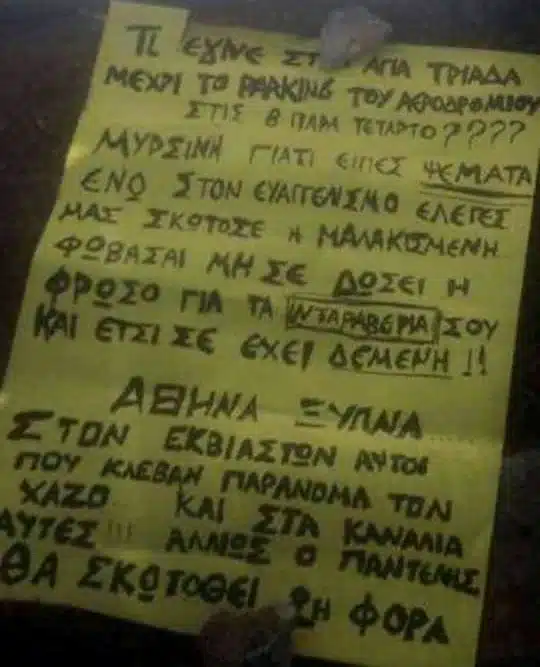 ΤΙ ΕΓΙΝΕ ΣΤΗΝ ΑΓΙΑ ΤΡΙΑΔΑ
ΜΕΧΡΙ ΤΟ PARKING ΤΟΥ ΑΕΡΟΔΡΟΜΙΟΥ
ΣΤΙΣ 8 ΠΑΡΑ ΤΕΤΑΡΤΟ????
ΜΥΡΣΙΝΗ ΓΙΑΤΙ ΕΙΠΕΣ ΨΕΜΑΤΑ
ΕΝΩ ΣΤΟΝ ΕΥΑΓΓΕΝΙΣΜΟ ΕΛΕΓΕΣ
ΜΑΣ ΣΚΟΤΟΣΕ Η ΜΑΛΑΚΙΣΜΕΝΗ
ΦΩΒΑΣΑΙ ΜΗ ΣΕ ΔΩΣΕΙ Η
ΦΡΩΣΟ ΓΙΑ ΤΑ ΝΤΑΡΑΒΕΡΙΑ ΣΟΥ
ΚΑΙ ΕΤΣΙ ΣΕ ΕΧΕΙ ΔΕΜΕΝΗ !!
ΑΘΗΝΑ ΞΥΠΝΑ......
ΣΤΟΝ ΕΚΒΙΑΣΤΩΝ ΑΥΤΟΙ
ΠΟΥ ΚΛΕΒΑΝ ΠΑΡΑΝΟΜΑ ΤΟΝ
ΧΑΖΟ ΚΑΙ ΣΤΑ ΚΑΝΑΛΙΑ
ΑΥΤΕΣ !!! ΑΛΛΙΩΣ Ο ΠΑΝΤΕΛΗΣ
ΘΑ ΣΚΩΤΟΘΕΙ 2Η ΦΟΡΑ